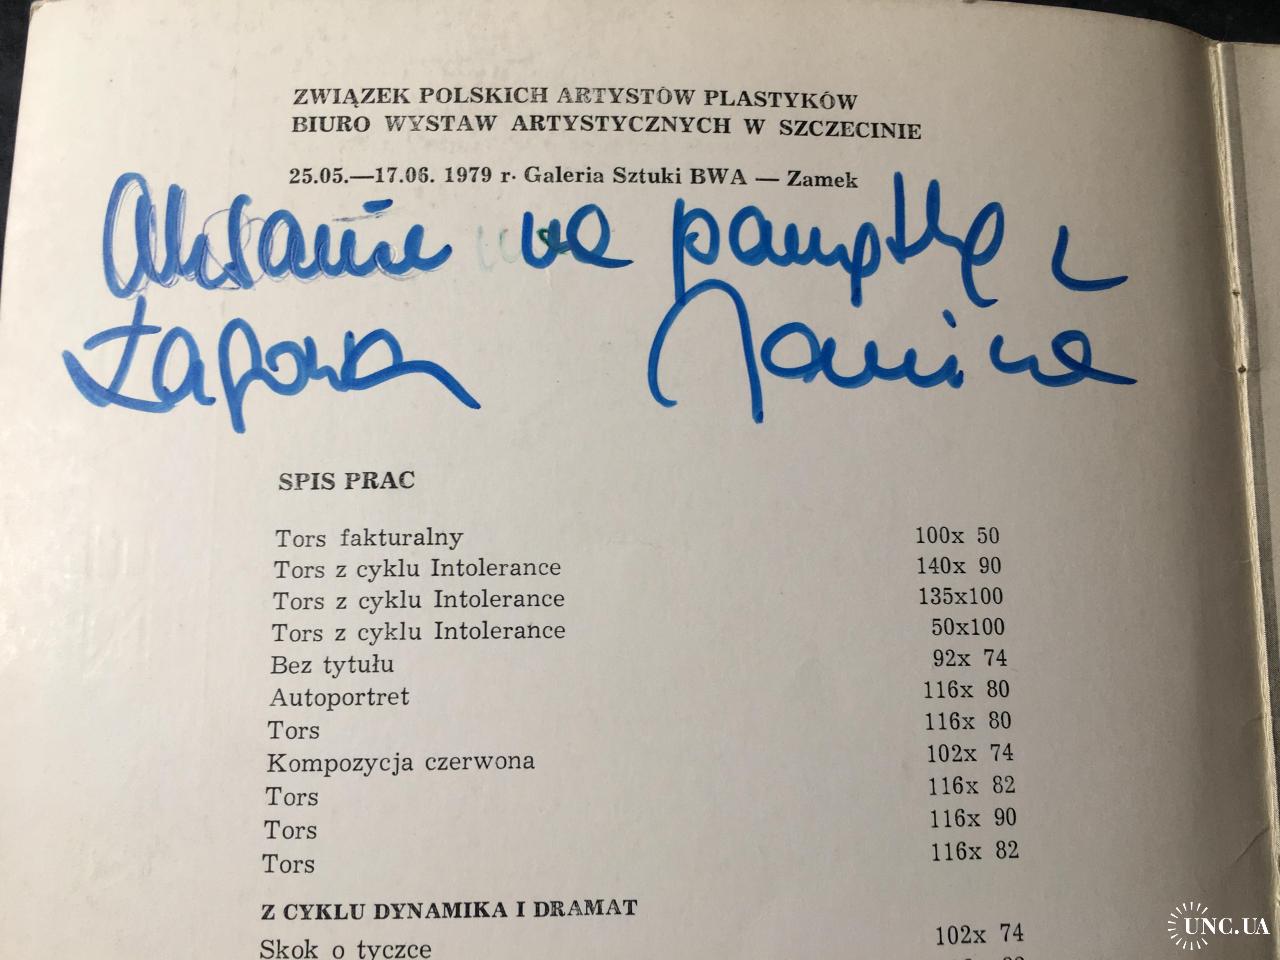 ZWIĄZEK POLSKICH ARTYSTÓW PLASTYKÓW
BIURO WYSTAW ARTYSTYCZNYCH W SZCZECINIE
25.05.—17.06. 1979 r. Galeria Sztuki BWA — Zamek
na pamiątkę z
Łagowa Janina
SPIS PRAC
Tors fakturalny 100x 50
Tors z cyklu Intolerance 140x 90
Tors z cyklu Intolerance 135x100
Tors z cyklu Intolerance 50x100
Bez tytułu 92x 74
Autoportret 116x 80
Tors 116x 80
Kompozycja czerwona 102x 74
Tors 116x 82
Tors 116x 90
Tors 116x 82
Z CYKLU DYNAMIKA I DRAMAT
Skok o tyczce 102x 74
UNC.UA